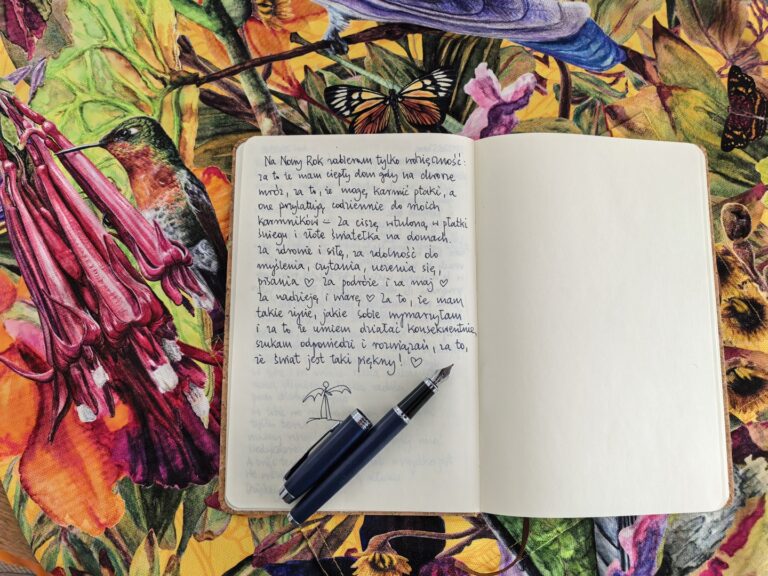 Na Nowy Rok zabieram tylko wdzięczność:
za to że mam ciepły dom gdy na dworze
mróz, za to, że mogę karmić ptaki, a
one przylatują codziennie do moich
karmników – Za ciszę wtuloną w płatki
śniegu i złote światełka na domach.
Za zdrowie i siłę, za zdolność do
myślenia, czytania, uczenia się,
pisania ♡ Za podróże i za maj ♡
Za nadzieję i wiarę ♡ Za to, że mam
takie życie, jakie sobie wymarzyłam
i za to że umiem działać konsekwentnie,
szukam odpowiedzi i rozwiązań, za to,
że świat jest taki piękny! ♡